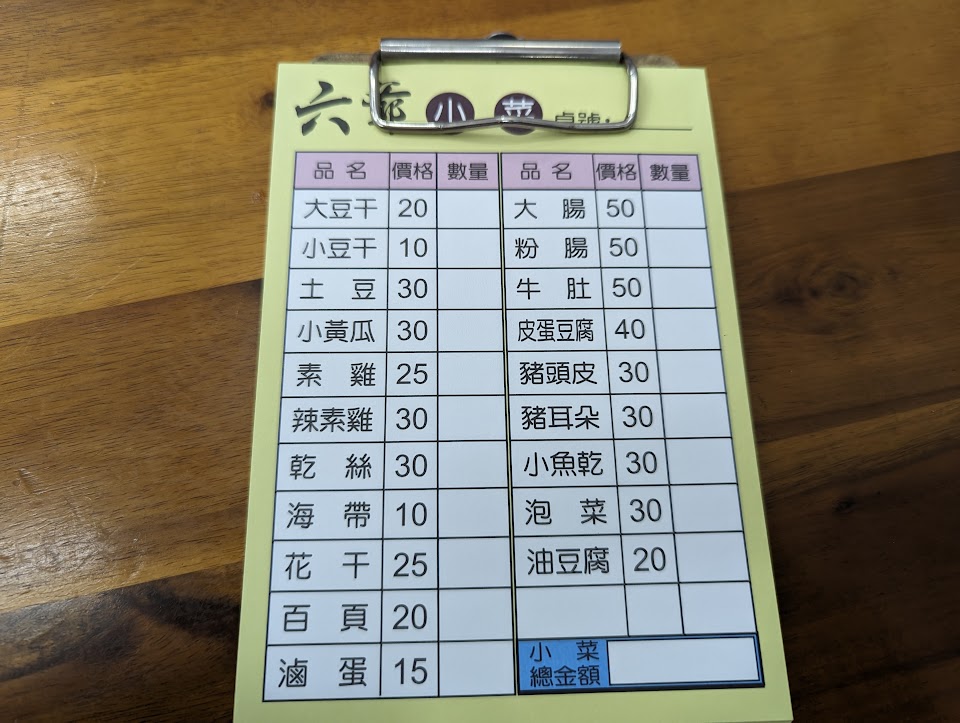 六 小菜
品名 價格 數量 品名 價格 數量
大豆干 20 大腸 50
小豆干 10 粉腸 50
土豆 30 牛肚 50
小黃瓜 30 皮蛋豆腐 40
素雞 25 豬頭皮 30
辣素雞 30 豬耳朵 30
乾絲 30 小魚乾 30
海帶 10 泡菜 30
花干 25 油豆腐 20
百頁 20
滷蛋 15 小菜總金額